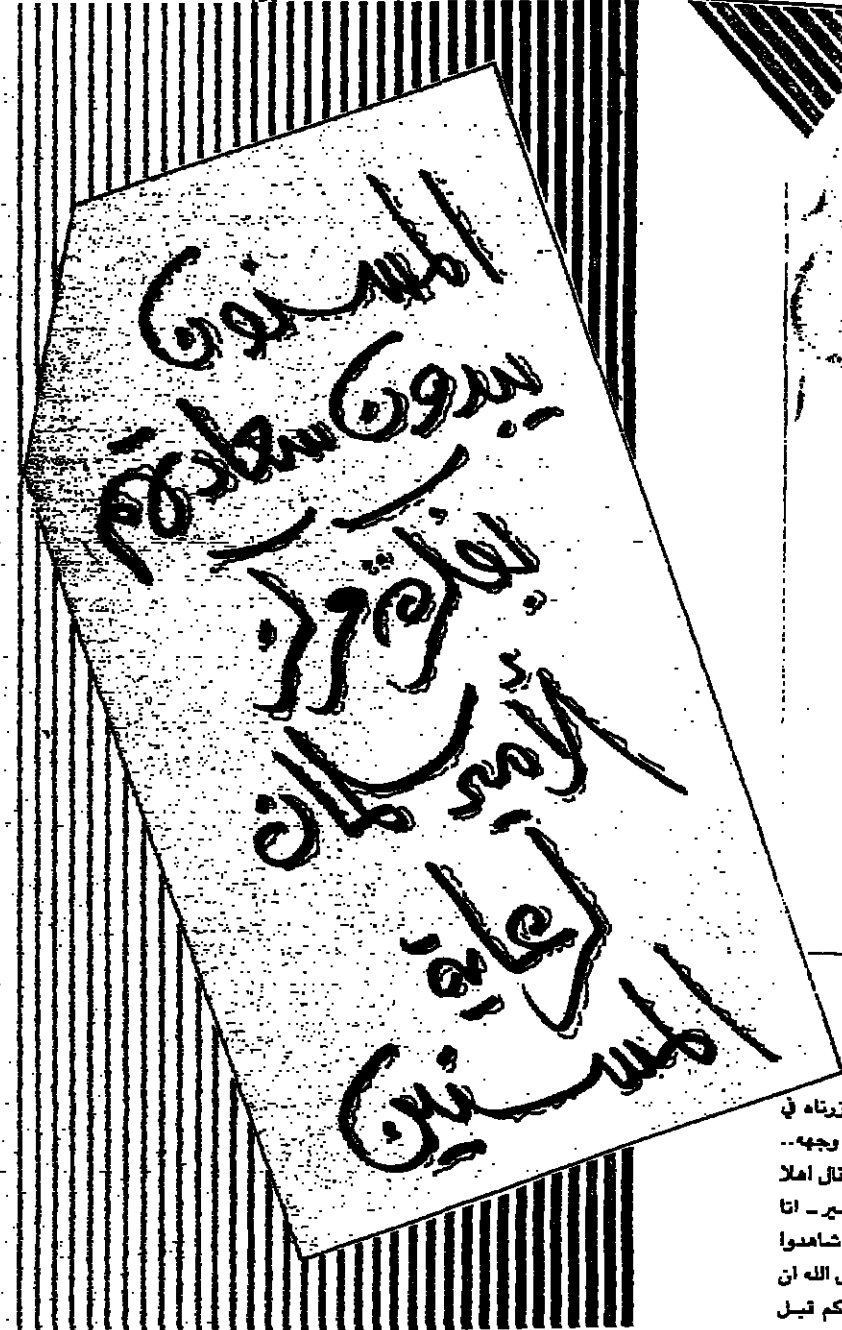 المسنون
يبدون سعادتهم
بفكرة مركز
الأمير سلمان
لرعاية
المسنين
زرناه في
وجهه..
قال اهلا
ـير ـ انا
شاهدوا
الله ان
كم قبل